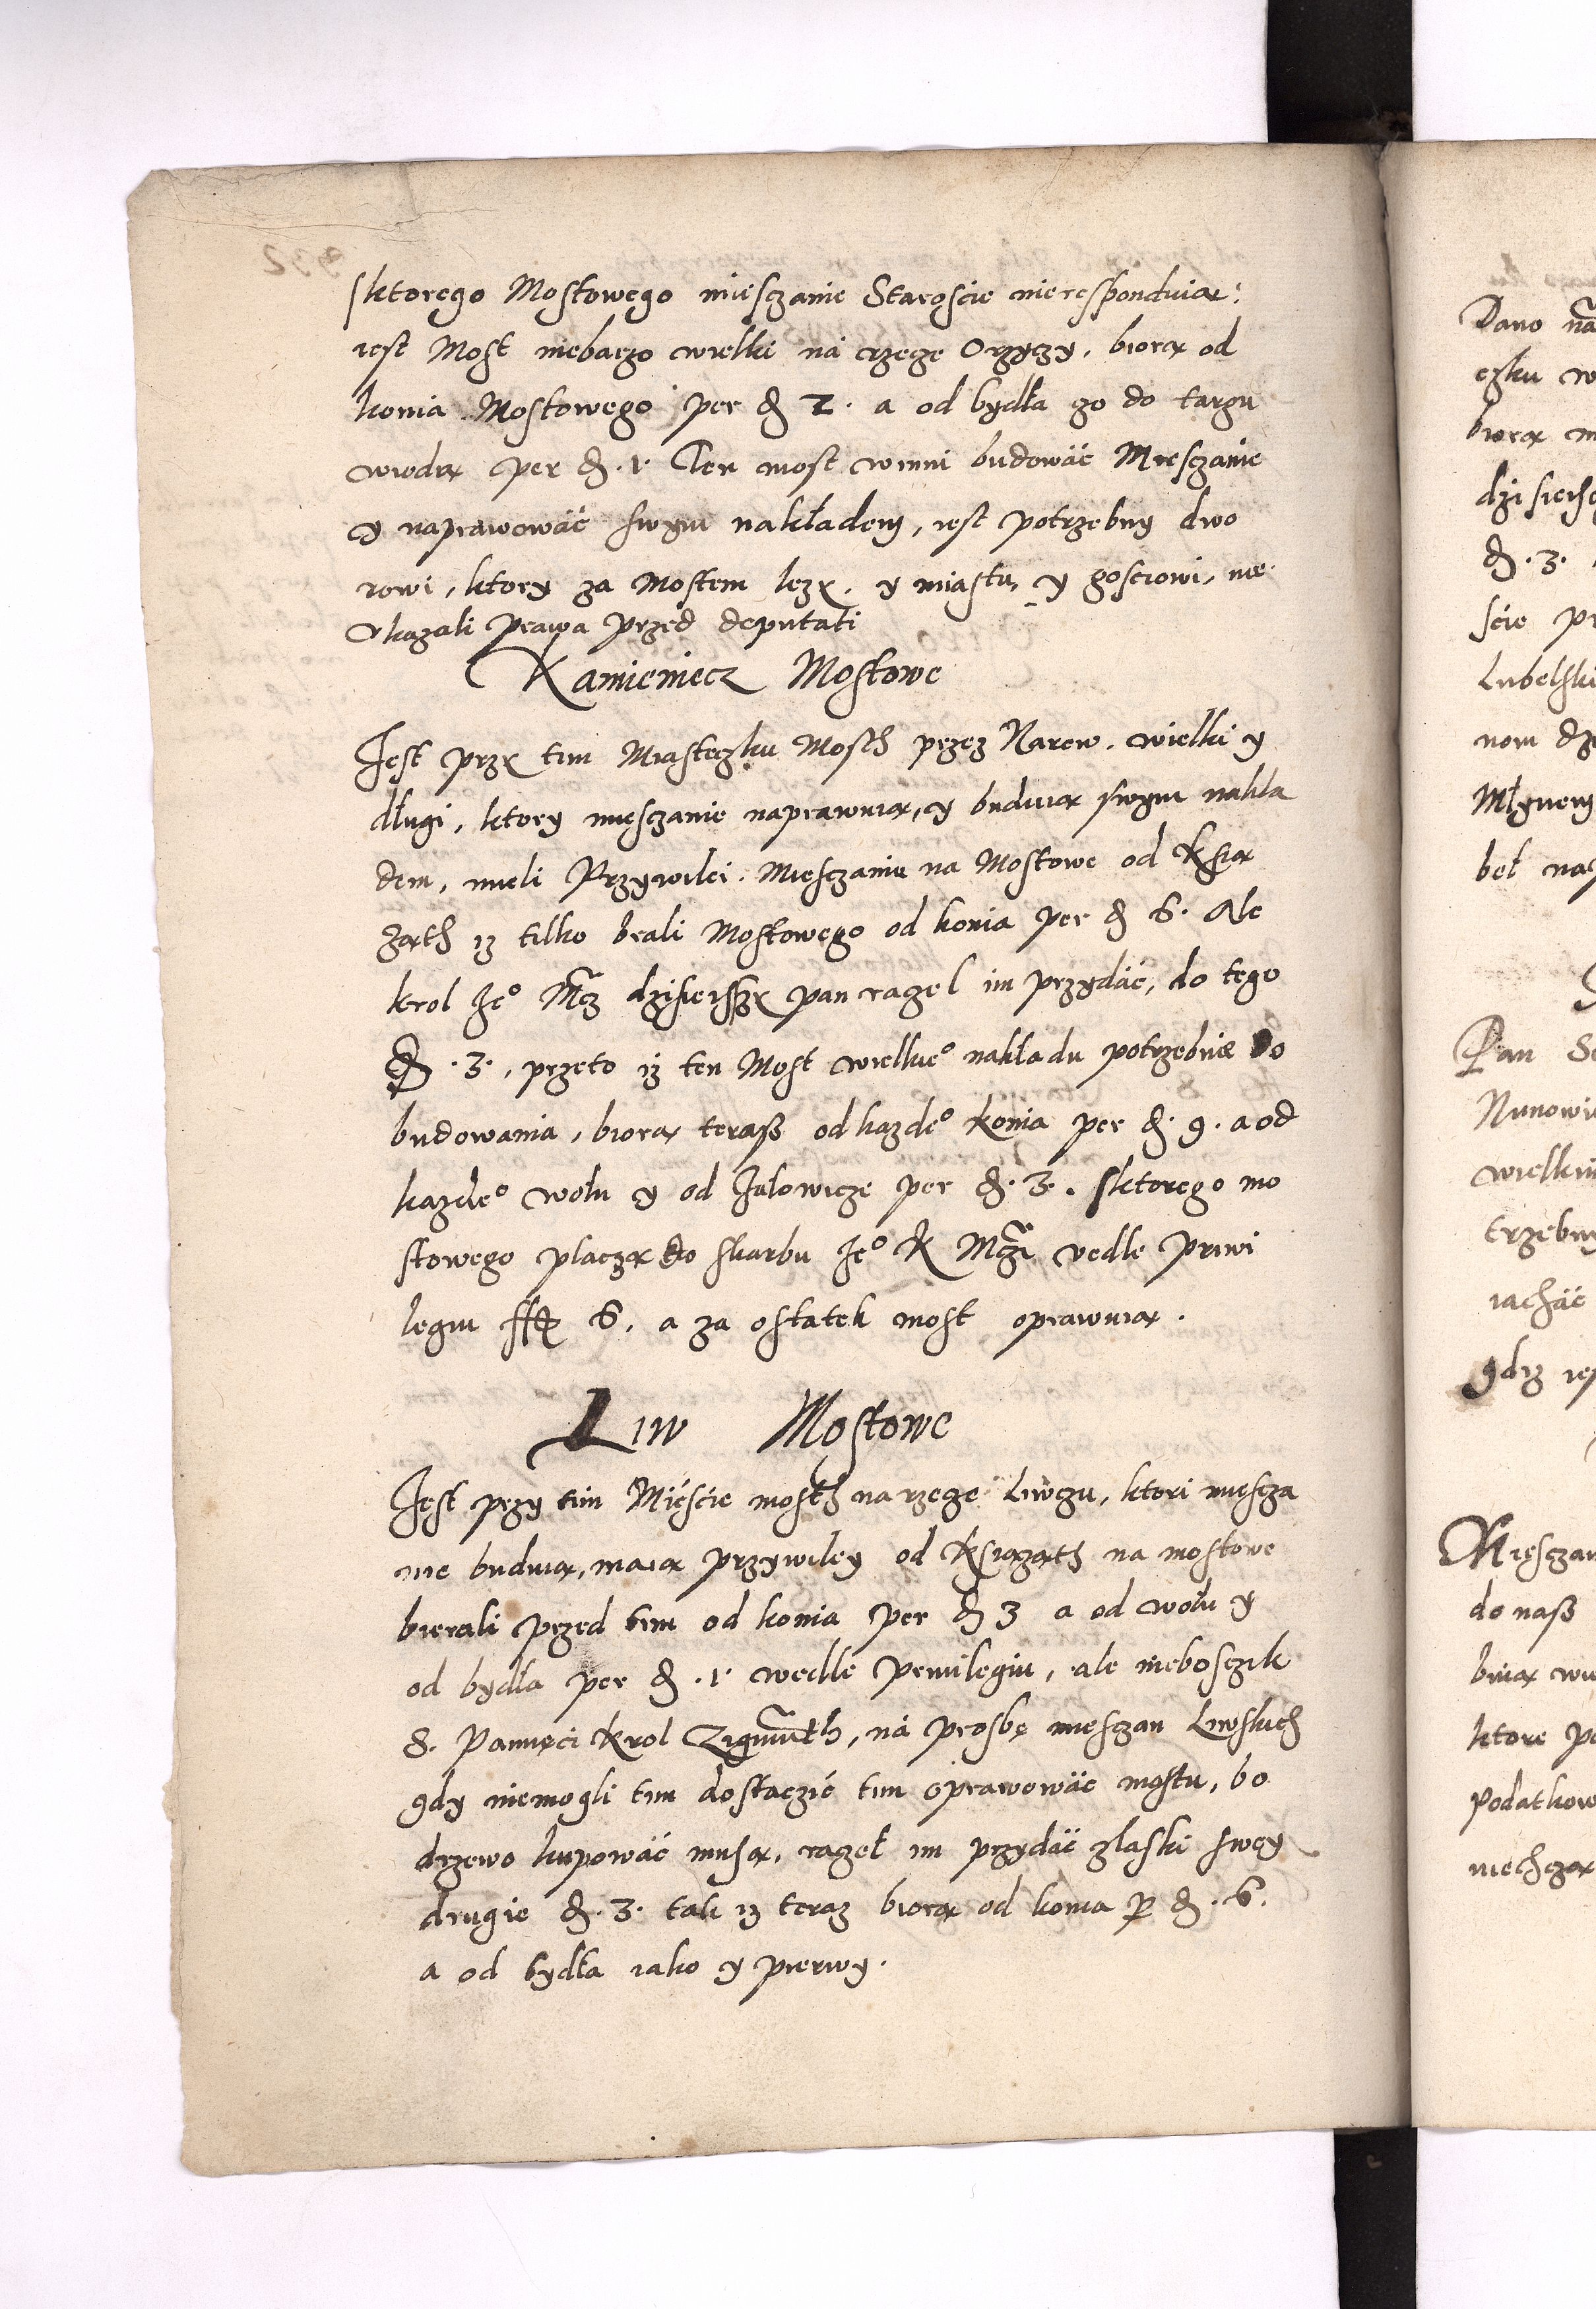 sktorego Mostowego miesczanie Staroscie nierespondуią:
iest Most niebarzo wielki ná rzege Orzyczy. biorą od
konia Mostowego per đ 2. a od bydła go do targu
wiodą per đ. 1. Ten most winni budowáć Miesczanie
y naprawowáć swym nakładem, iest potrzebny dwo
rowi, ktory za Mostem lezy. y miastu, y gosciowi, nie
okazali prawa przed deputati
Kamieniecz Mostowe
Jest przy tim Miasteczku Mosth przez Narew. wielki y
długi, ktory miesczanie naprawuią, y buduią swym nakła
dem, mieli Przywilei. Miesczanie na Mostowe od Ksią
żąth iż tilko brali Mostowego od konia per đ 6. Ale
krol Jeo Mcz dzisieiszy pan raczel im przydáć, do tego
đ. 3., przeto iż ten Most wielkieo nakładu potrzebuie do
budowania, biorą terasz od kazdeo konia per đ. 9. a od
kazdeo wołu y od Jałowicze per đ. 3. sktorego mo
stowego płaczą do skarbu Jeo K Mczi vedle priwi
legiu ff 6. a za ostatek most oprawuią.
Liw Mostowe
Jest przy tim Mieście mosth na rzege Liwczu, ktori miescza
nie buduią, maią przywiley od Ksiąząth na mostowe
bierali przed tim od konia per đ 3 a od wołu y
od bydła per đ. 1. wedle prиuilegiu, ale nieboscżik
S. Pamięci Krol Zigmuth, ná prosbę miesczan Liwskich
gdy niemogli tim dostaczić tim oprawowáć mostu, bo
drzewo kupowáć muszą, raczel im przydáć z łaski swey
drugie đ. 3. tak iż teraz biorą od konia p đ. 6.
a od bydła iako y pierwy.